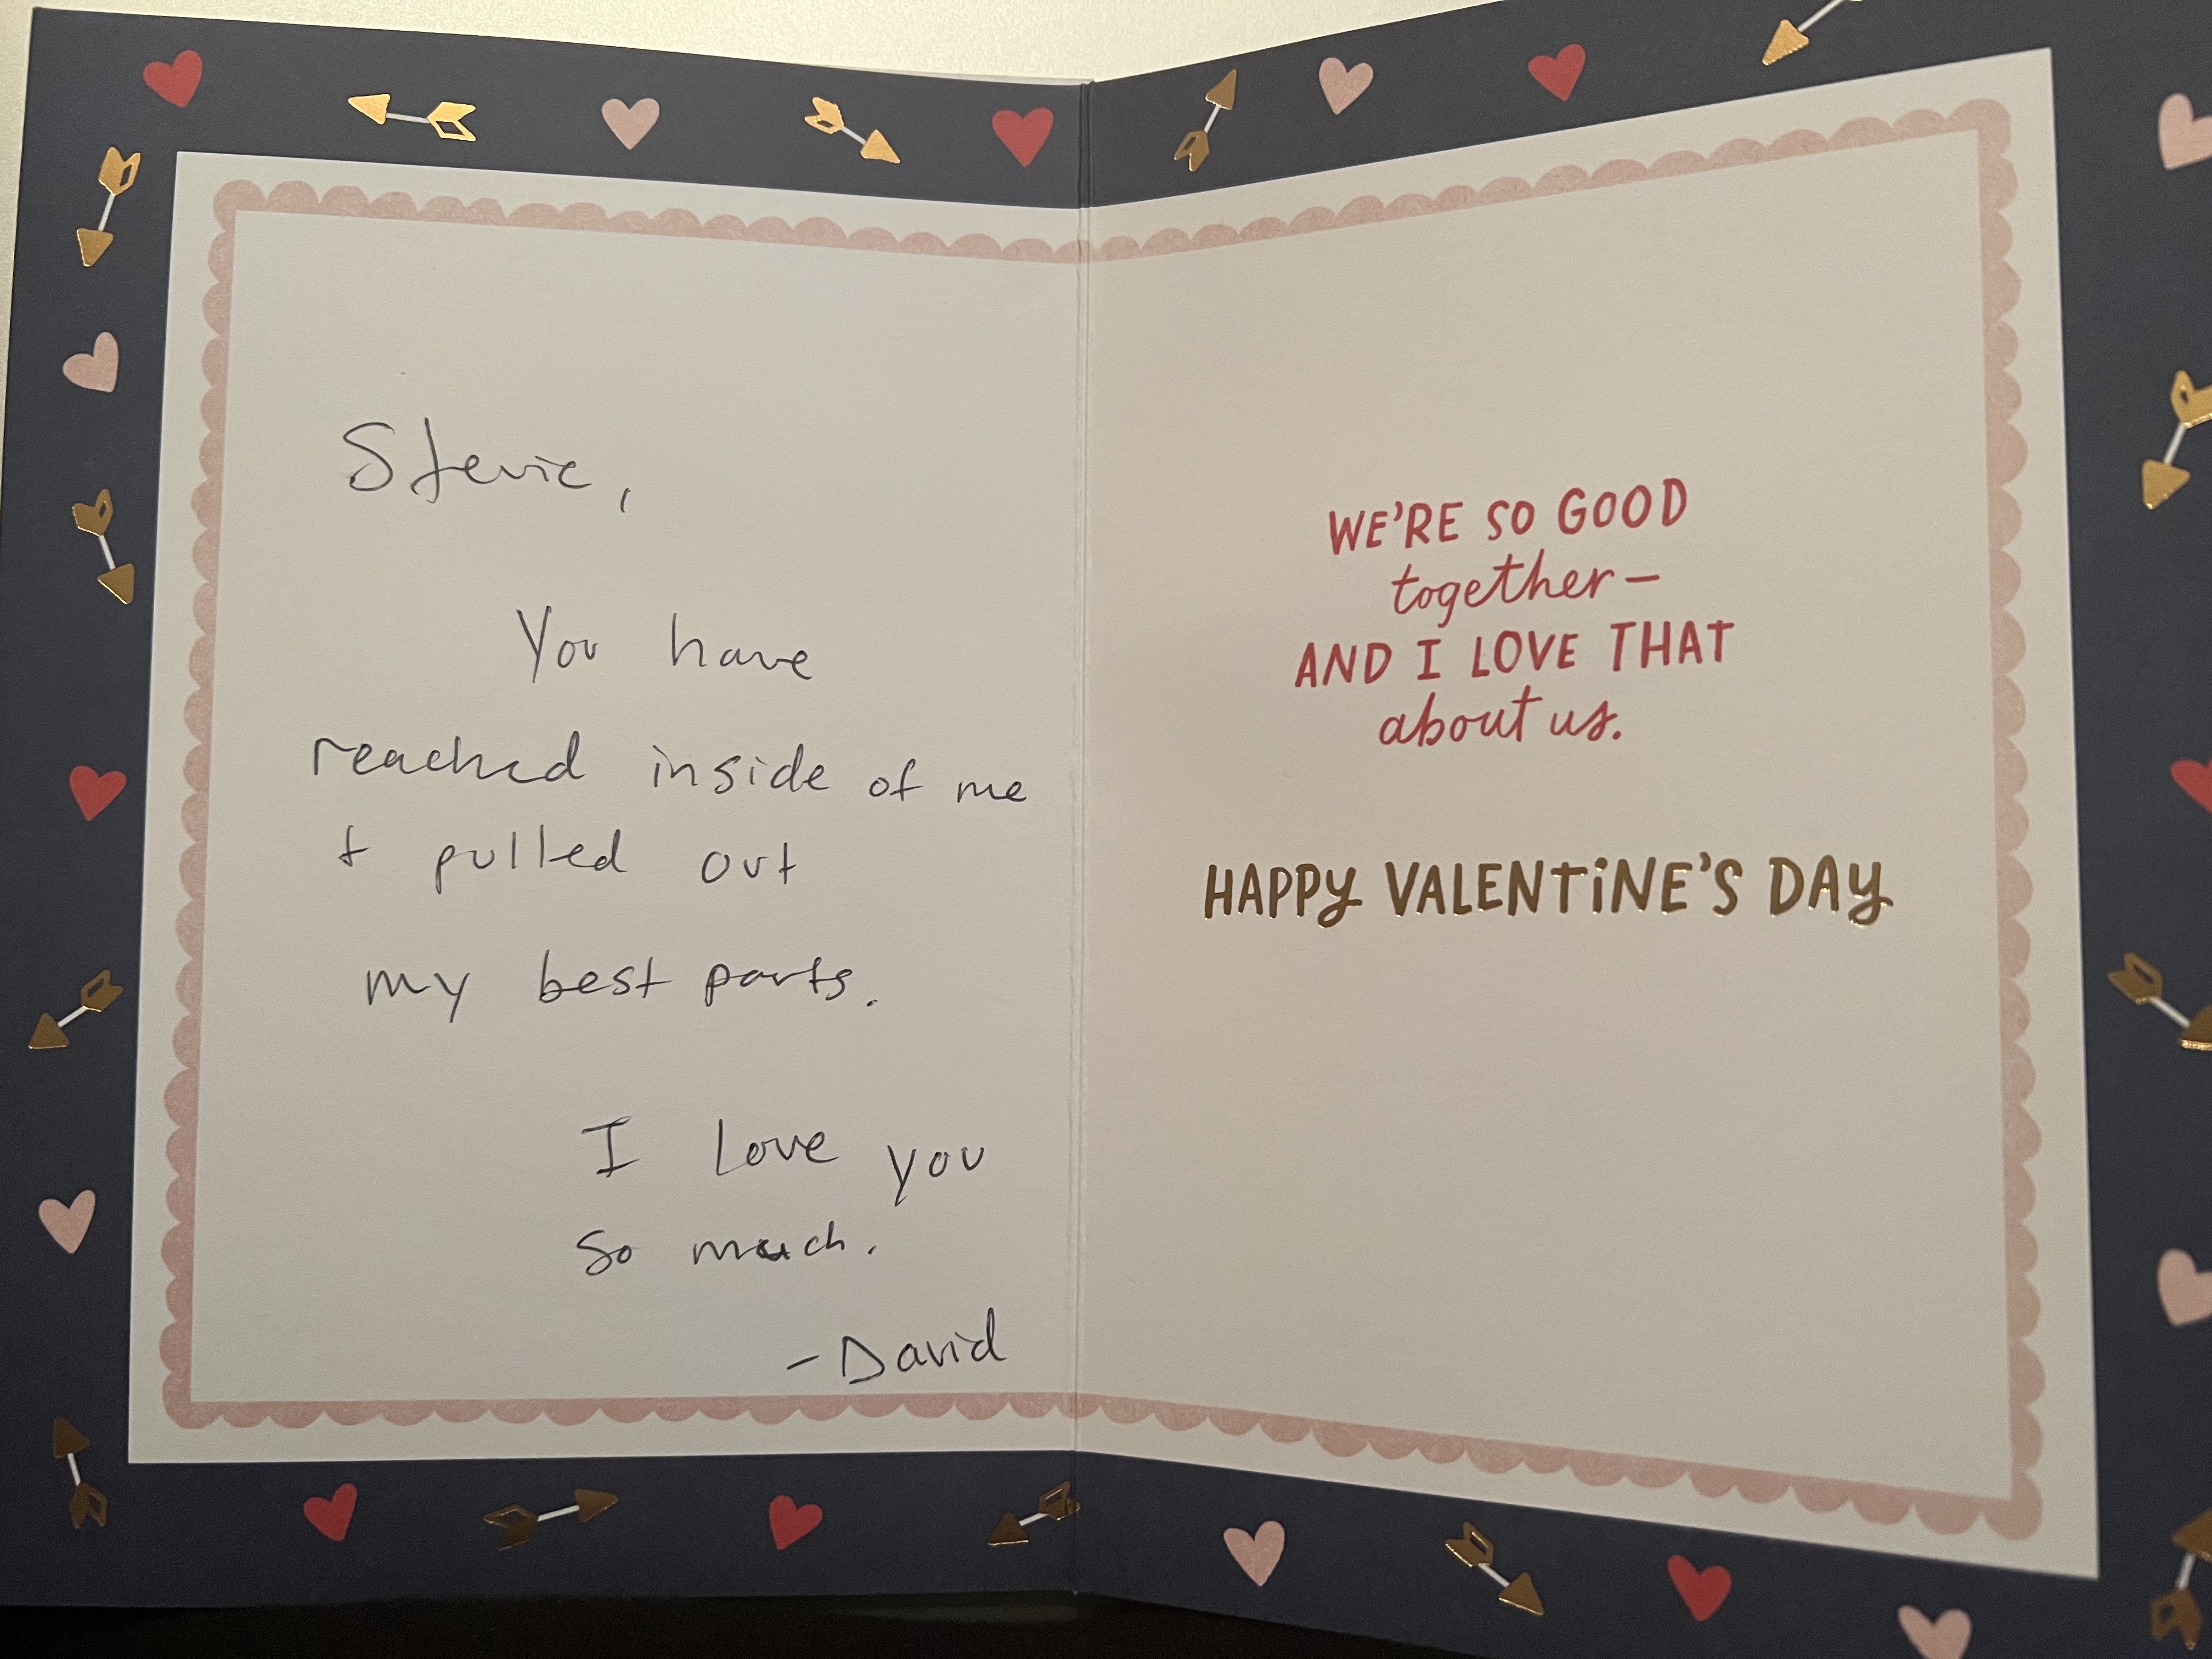 Stevie,
You have
reached inside of me
+ pulled out
my best parts.
I love you
so much.
-David
WE'RE SO GOOD
together-
AND I LOVE THAT
about us.
HAPPY VALENTINE'S DAY